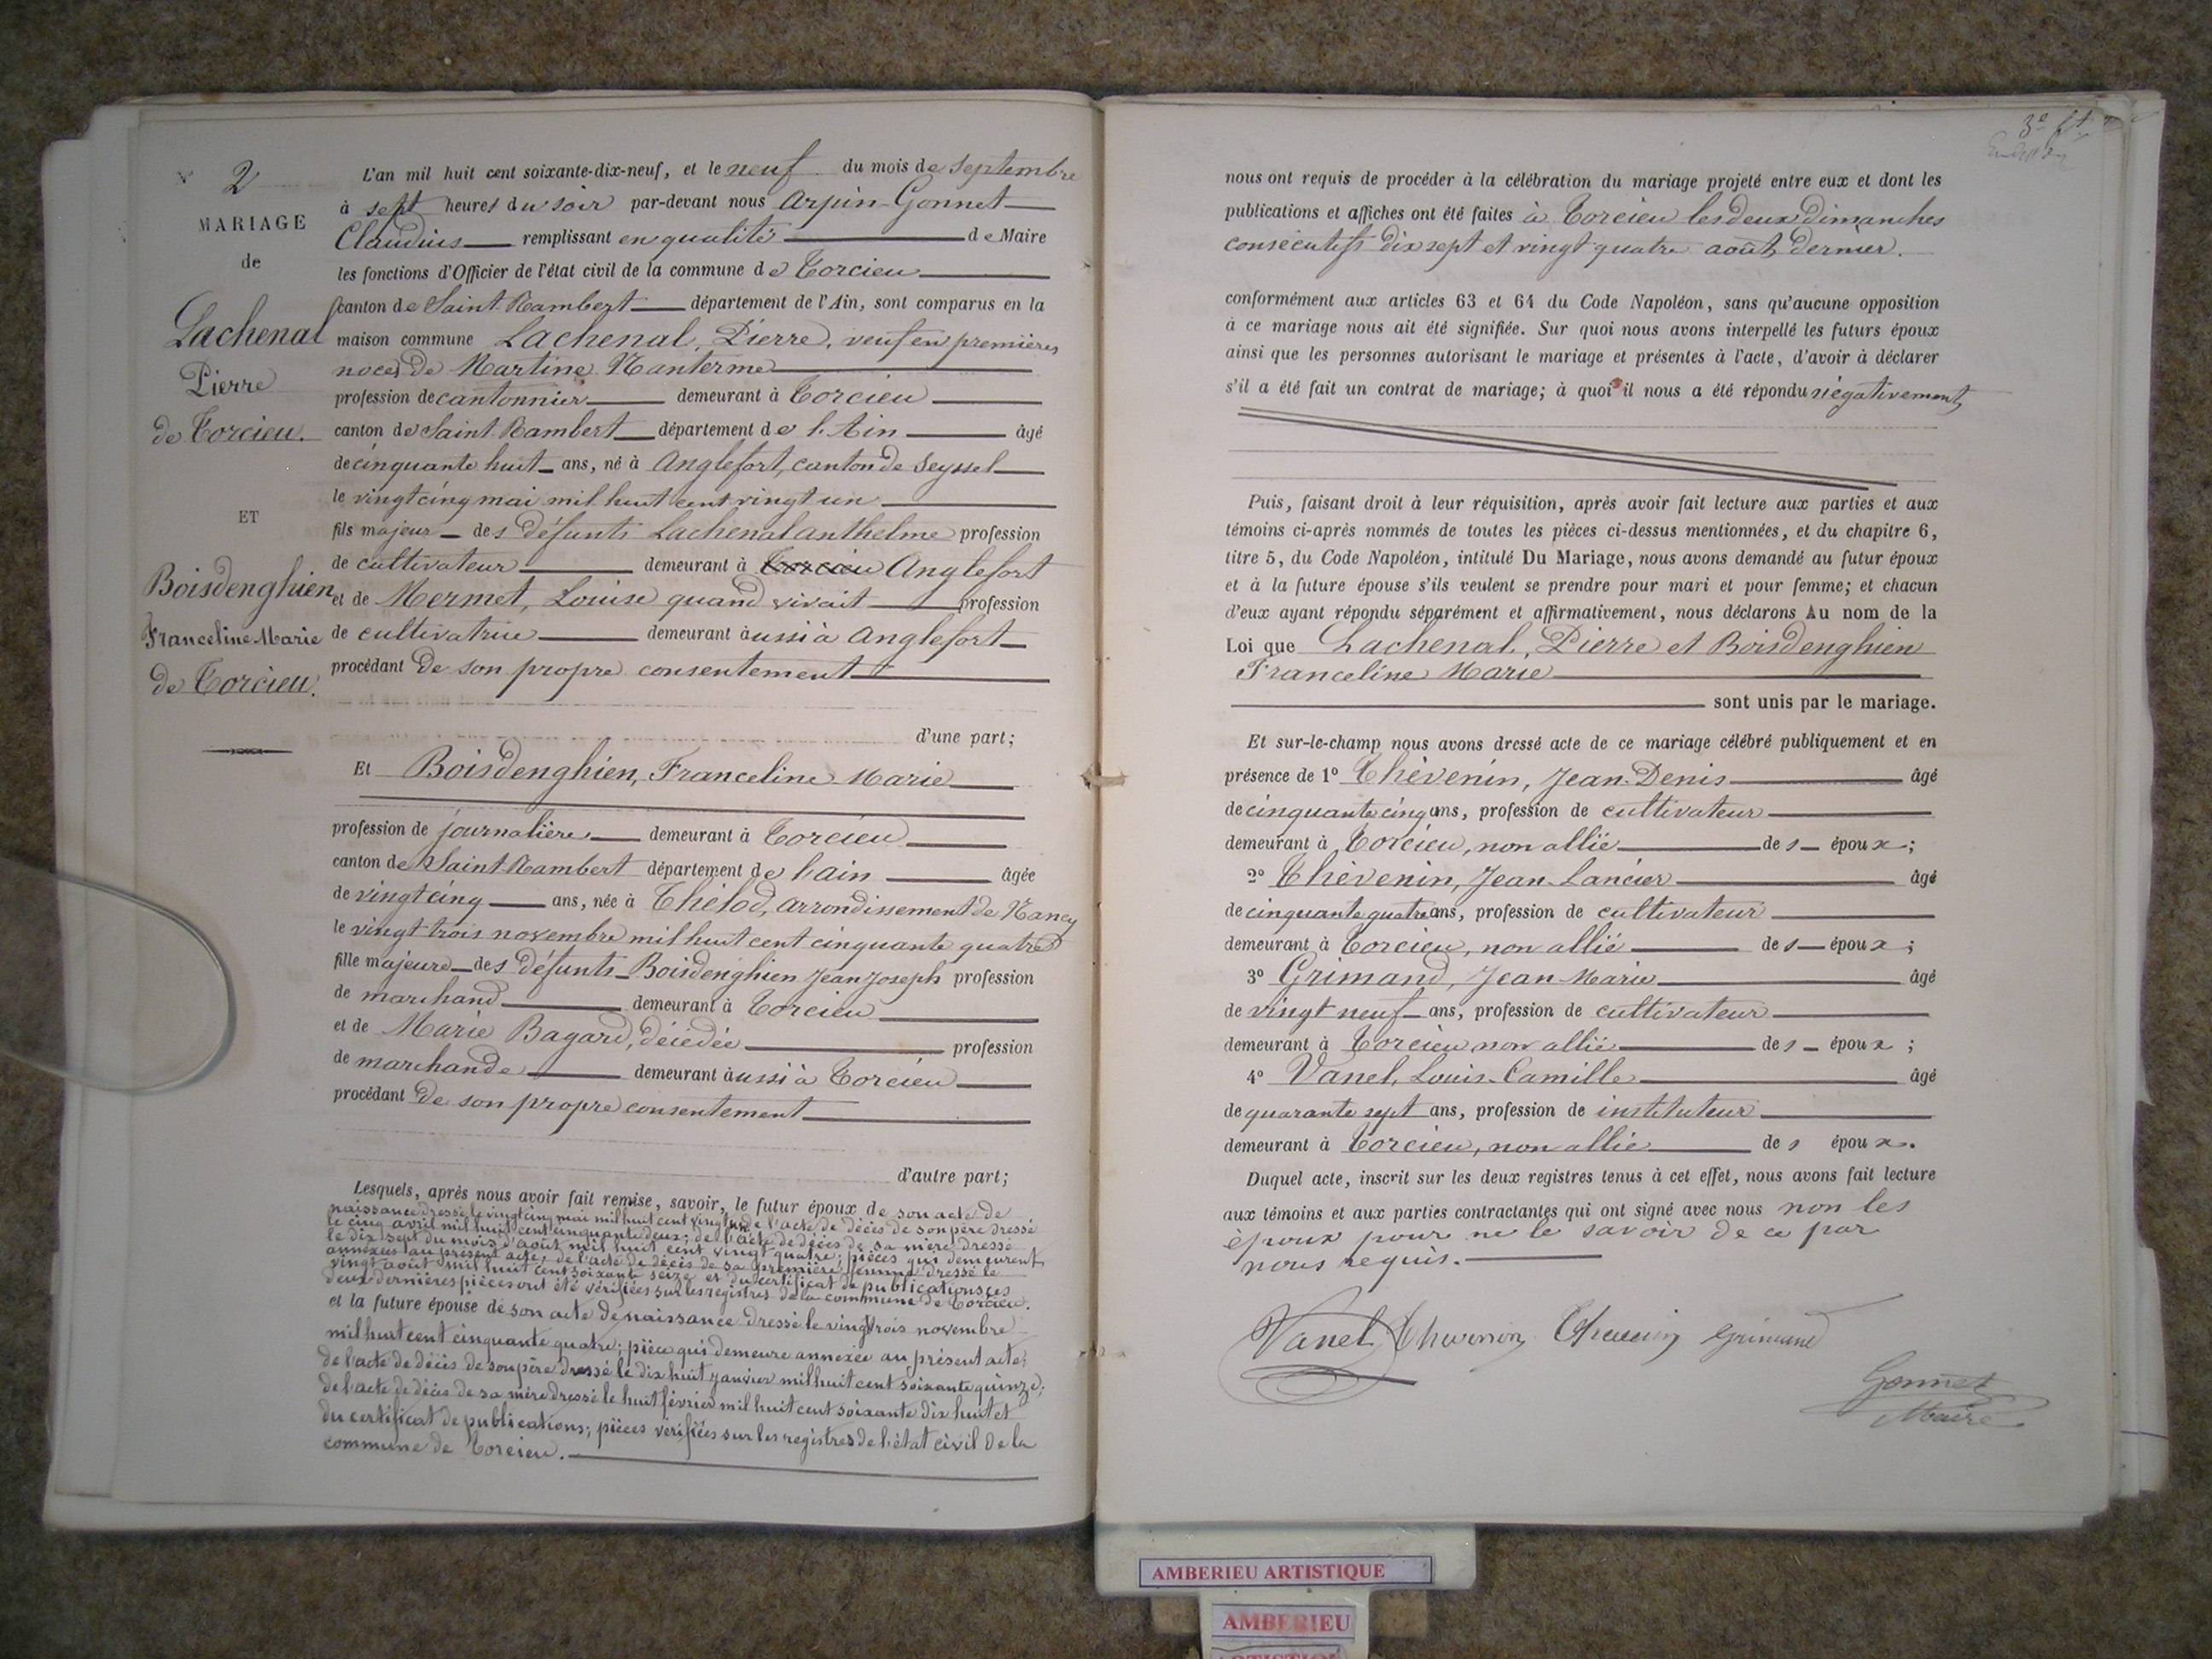 N° 2
MARIAGE
de
Lachenal
Pierre
de Torcieu.
ET
Boisdenghien
Franceline Marie
de Torcieu.
L'an mil huit cent soixante-dix-neuf, et le neuf du mois de Septembre
à sept heures du soir par-devant nous Arpin-Gonnet
Claudius remplissant en qualité de Maire
les fonctions d'Officier de l'état civil de la commune de Torcieu
canton de Saint Rambert département de l'Ain, sont comparus en la
maison commune Lachenal, Pierre, veuf en premières
noces de Martine Nanterme
profession de cantonnier demeurant à Torcieu
canton de Saint Rambert département de l'Ain âgé
de cinquante huit ans, né à Anglefort, canton de Seyssel
le vingt cinq mai mil huit cent vingt un
fils majeur des défunts Lachenal anthelme profession
de cultivateur demeurant à Torcieu Anglefort
et de Mermet, Louise quand vivait profession
de cultivatrice demeurant aussi à Anglefort
procédant de son propre consentement
d'une part;
Et Boisdenghien, Franceline Marie
profession de journalière demeurant à Torcieu
canton de Saint Rambert département de l'ain âgée
de vingt cinq ans, née à Thélod, arrondissement de Nancy
le vingt trois novembre mil huit cent cinquante quatre
fille majeure des défunts Boisdenghien Jean Joseph profession
de marchand demeurant à Torcieu
et de Marie Bagard, décédée profession
de marchande demeurant aussi à Torcieu
procédant de son propre consentement
d'autre part;
Lesquels, après nous avoir fait remise, savoir, le futur époux de son acte de
naissance dressé le vingt cinq mai mil huit cent vingt un de l'acte de décès de son père dressé
le cinq avril mil huit cent cinquante deux; de l'acte de décès de sa mère dressé
le dix sept du mois d'août mil huit cent vingt quatre; pièces qui demeurent
annexées au présent acte; de l'acte de décès de sa première femme dressé le
vingt août mil huit cent soixante seize et du certificat de publications ces
deux dernières pièces ont été vérifiées sur les registres de la commune de Torcieu.
et la future épouse de son acte de naissance dressé le vingt trois novembre
mil huit cent cinquante quatre; pièce qui demeure annexée au présent acte;
de l'acte de décès de son père dressé le dix huit janvier mil huit cent soixante quinze;
de l'acte de décès de sa mère dressé le huit février mil huit cent soixante dix huit et
du certificat de publications; pièces vérifiées sur les registres de l'état civil de la
commune de Torcieu.
nous ont requis de procéder à la célébration du mariage projeté entre eux et dont les
publications et affiches ont été faites à Torcieu les deux dimanches
consécutifs dix sept et vingt quatre août dernier.
conformément aux articles 63 et 64 du Code Napoléon, sans qu'aucune opposition
à ce mariage nous ait été signifiée. Sur quoi nous avons interpellé les futurs époux
ainsi que les personnes autorisant le mariage et présentes à l'acte, d'avoir à déclarer
s'il a été fait un contrat de mariage; à quoi il nous a été répondu négativement
Puis, faisant droit à leur réquisition, après avoir fait lecture aux parties et aux
témoins ci-après nommés de toutes les pièces ci-dessus mentionnées, et du chapitre 6,
titre 5, du Code Napoléon, intitulé Du Mariage, nous avons demandé au futur époux
et à la future épouse s'ils veulent se prendre pour mari et pour femme; et chacun
d'eux ayant répondu séparément et affirmativement, nous déclarons Au nom de la
Loi que Lachenal, Pierre et Boisdenghien
Franceline Marie
sont unis par le mariage.
Et sur-le-champ nous avons dressé acte de ce mariage célébré publiquement et en
présence de 1° Thévenin, Jean-Denis âgé
de cinquante cinq ans, profession de cultivateur
demeurant à Torcieu, non allié des époux;
2° Thévenin, Jean-Lancier âgé
de cinquante quatre ans, profession de cultivateur
demeurant à Torcieu, non allié des époux;
3° Grimand, Jean Marie âgé
de vingt neuf ans, profession de cultivateur
demeurant à Torcieu non allié des époux;
4° Vanel, Louis-Camille âgé
de quarante sept ans, profession de instituteur
demeurant à Torcieu, non allié des époux.
Duquel acte, inscrit sur les deux registres tenus à cet effet, nous avons fait lecture
aux témoins et aux parties contractantes qui ont signé avec nous non les
époux pour ne le savoir de ce par
nous requis.
Vanel Thevenin Thevenin Grimand
Gonnet
Maire
AMBERIEU ARTISTIQUE
AMBERIEU
ARTISTIQUE